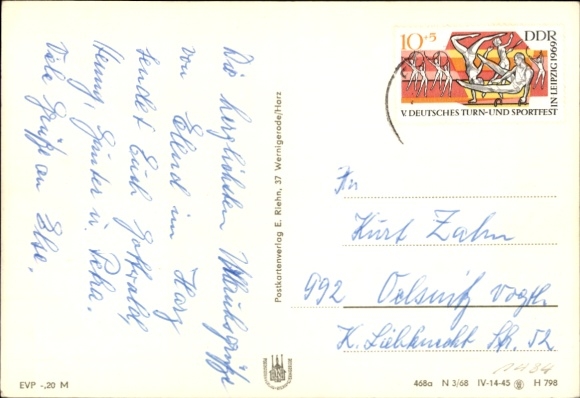 Die herzlichsten Urlaubsgrüße
von Elend im Harz
sendet Euch Gottwald,
Henny, Günter u. Petra.
Viele Grüße an Else.
Postkartenverlag E. Riehn, 37 Wernigerode/Harz
10+5 DDR
V. DEUTSCHES TURN- UND SPORTFEST
IN LEIPZIG 1969
An
Kurt Zahn
992 Oelsnitz Vogtl.
K. Liebknecht Str. 52
1484
EVP -,20 M
468a N 3/68 IV-14-45 H 798